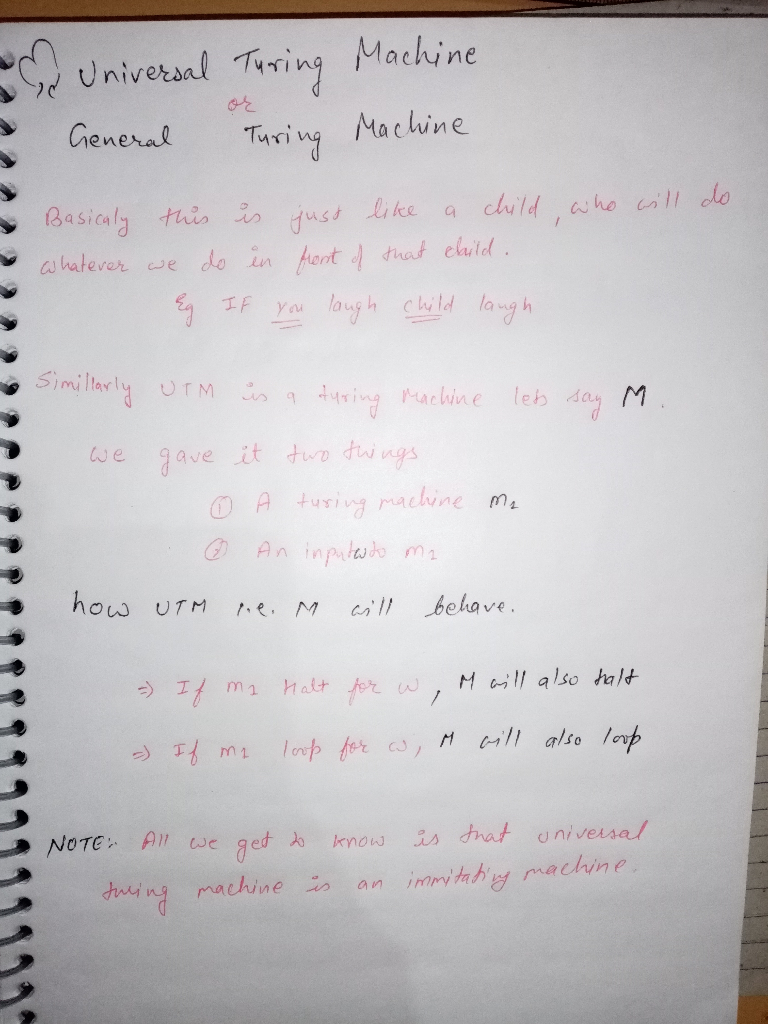 Universal Turing Machine
or
General Turing Machine
Basicaly this is just like a child, who will do
whatever we do in front of that child.
Eg IF you laugh child laugh
Simillarly UTM is a turing Machine lets say M.
we gave it two things
① A turing machine m1
② An input w to m1
how UTM i.e. M will behave.
⇒ If m1 Halt for w, M will also halt
⇒ If m1 loop for w, M will also loop
NOTE:- All we get to know is that universal
turing machine is an immitating machine.